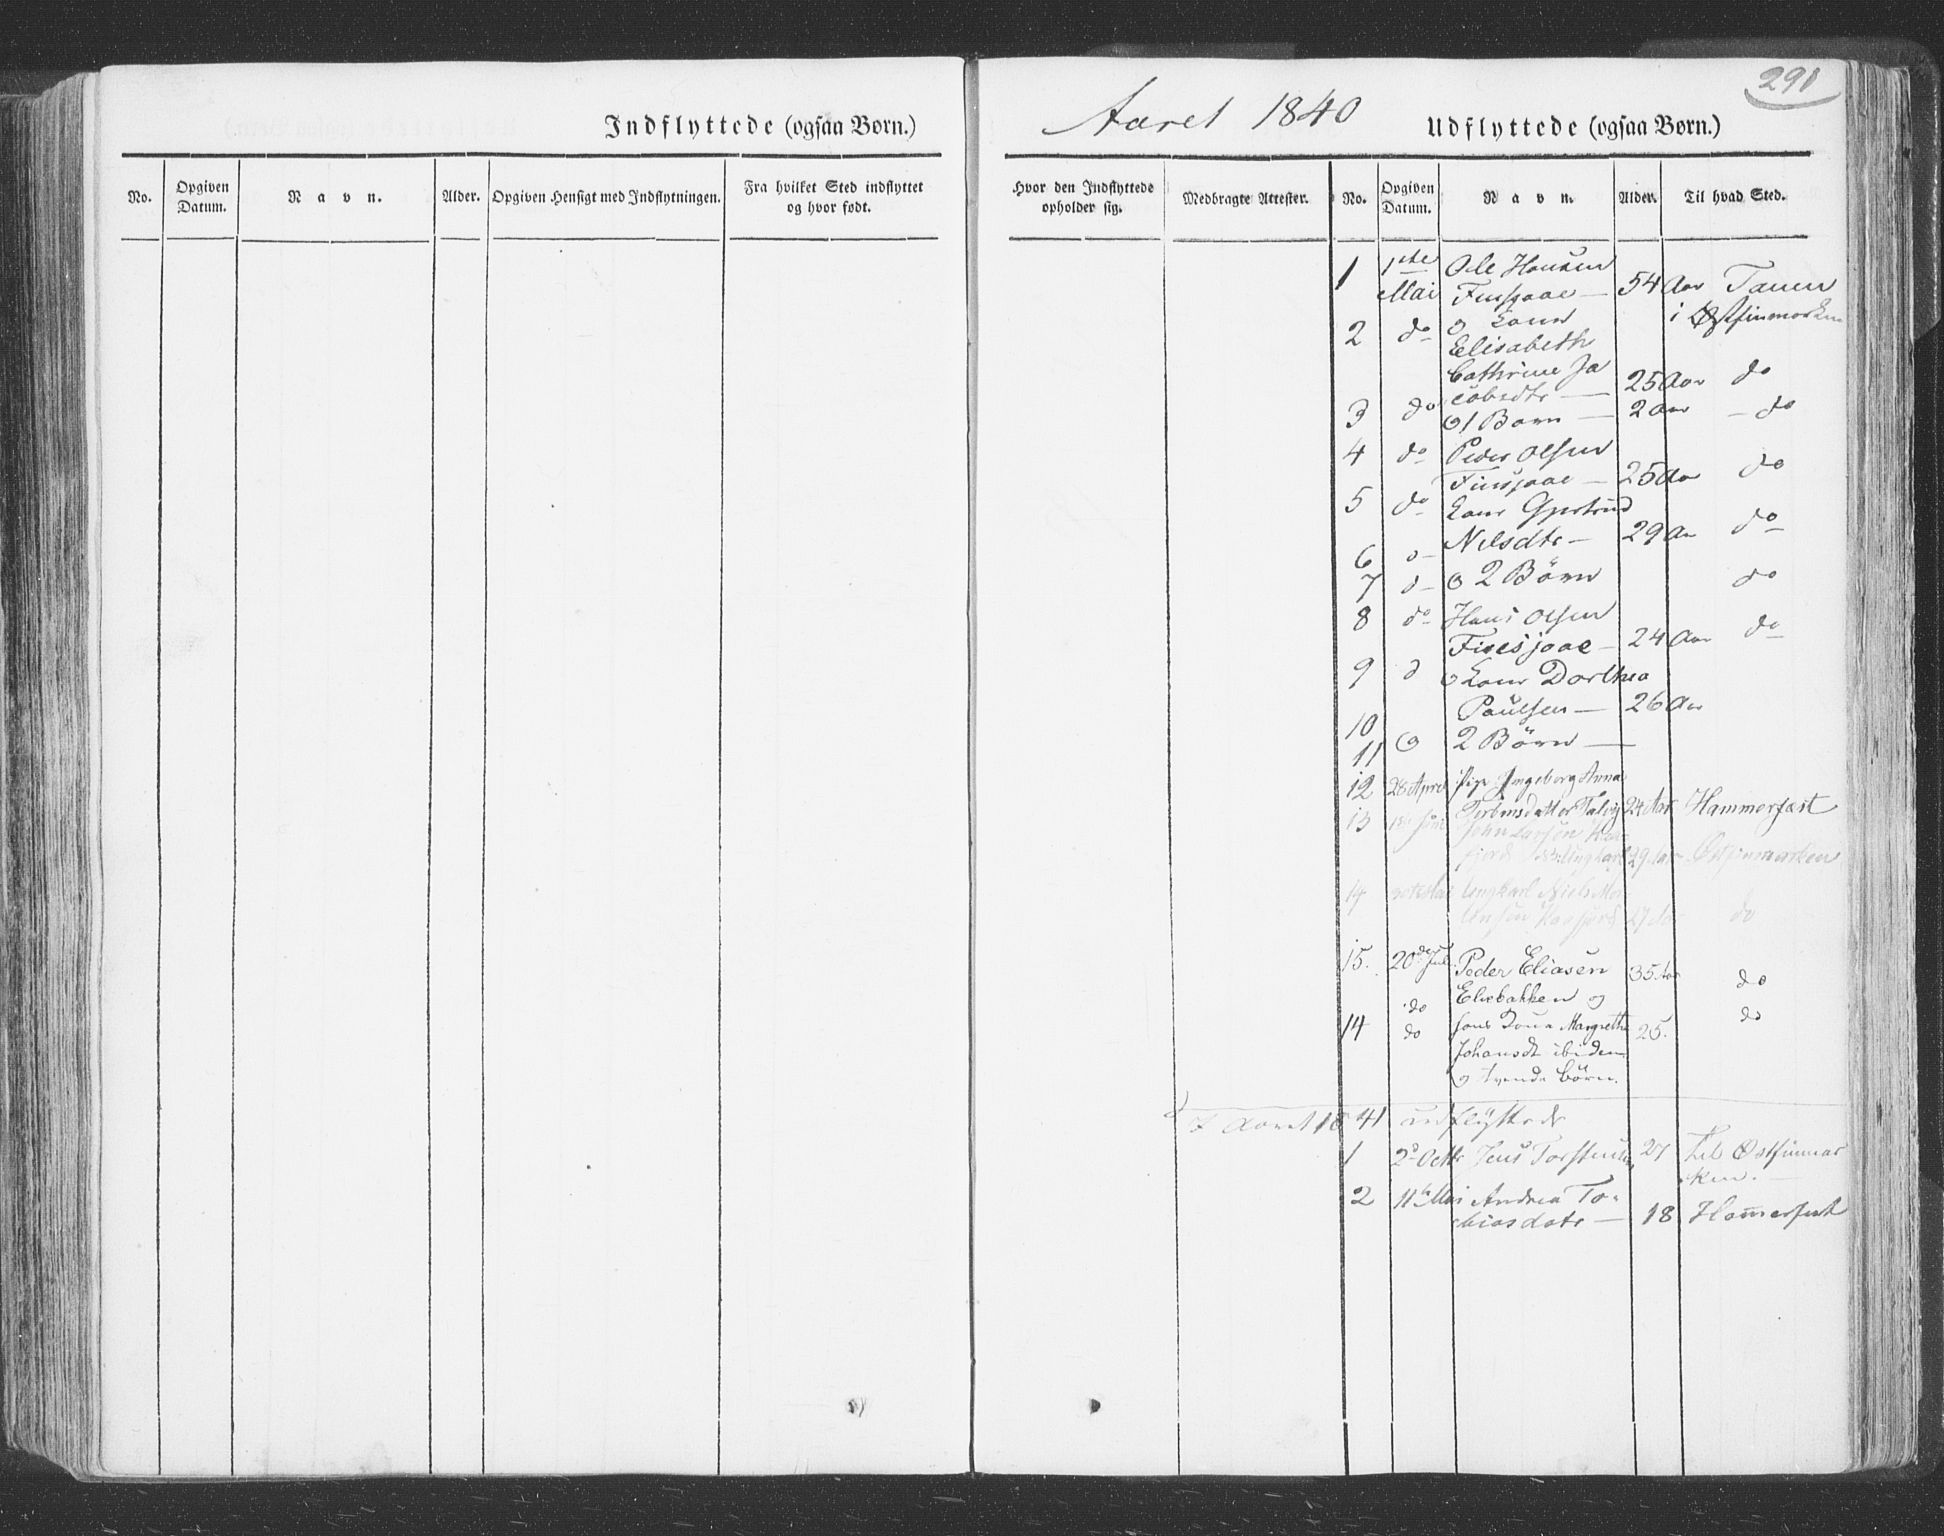 291
Indflyttede (ogsaa Børn.)
Aaret 1840
Udflyttede (ogsaa Børn.)
No.
Opgiven Datum.
Navn.
Alder.
Opgiven Hensigt med Indflytningen.
Fra hvilket Sted indflyttet og hvor født.
Hvor den Indflyttede opholder sig.
Medbragte Attester.
No.
Opgiven Datum.
Navn.
Alder.
Til hvad Sted.
1 1ste Ole Hansen
Mai 54 Aar Tanen
i Østfinmarken
2 do Kone
Elisabeth
Cathrine Ja
cobsdtr — 25 Aar do
3 do 1 Barn — 2 Aar — do
4 do Peder Olsen
— 25 Aar do
5 do Kone Gjertrud
Nilsdtr — 29 Aar do
6
7 2 Børn do
8 do Hans Olsen
Finesjaae — 24 Aar do
9 d Kone Dorthea
Paulsen — 26 Aar
10
11 2 Børn —
12 28 April Pige Ingeborg Anna
Torbensdatter Talvig 24 Aar Hammerfest
13 John Larsen
Ungkarl 29 Aar Østfinmarken
14 Ungkarl Niels
27 Aar do
15. 20de Juli Peder Eliasen 35 Aar
do Elvebakken og do
14 do hans Kone Margrethe 25. do
Johansdt ibiden
og tvende Børn.
I Aaret 1841 udflyttede
1 Octbr Jens Torstensen 27 Til Østfinmar
ken. —
2 11te Mai Andrea To-
biasdatr — 18 Hammerfest